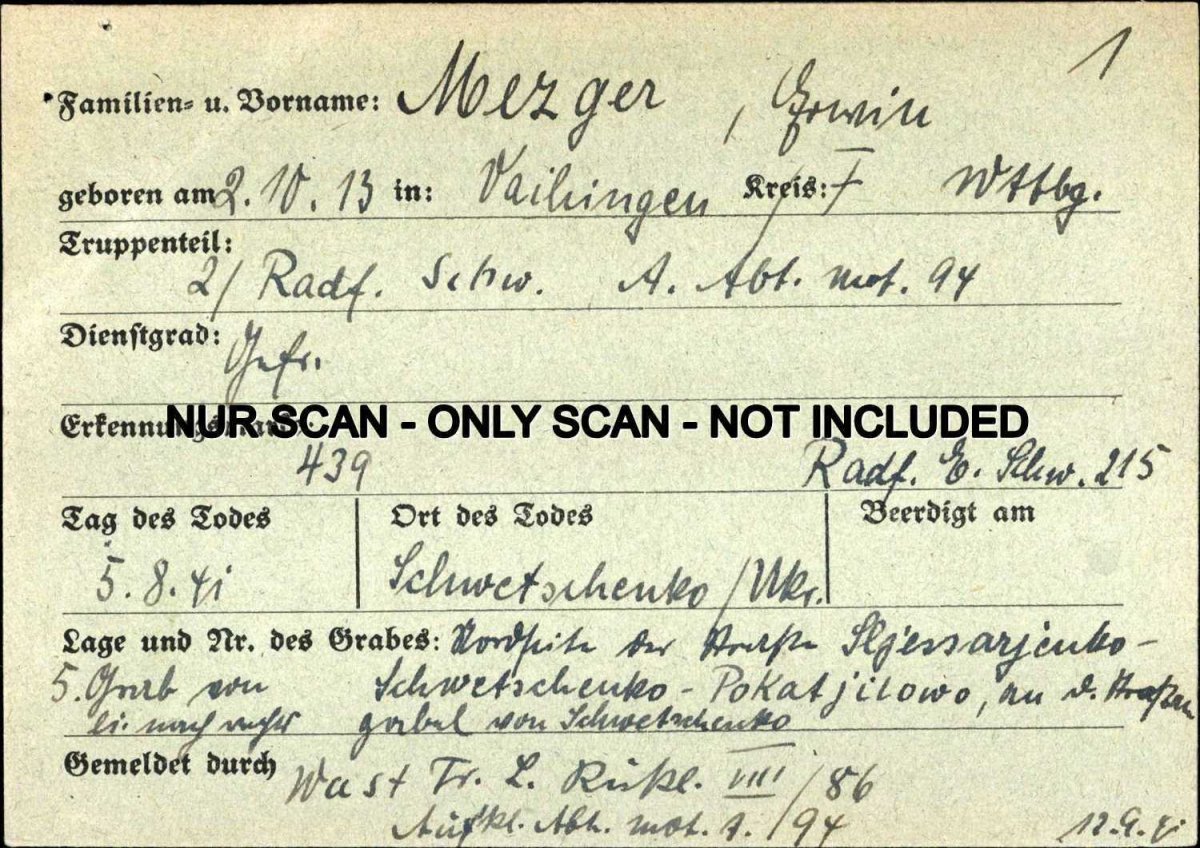 1
Familien= u. Vorname: Mezger, Erwin
geboren am 2.10.13 in: Vaihingen Kreis: Wttbg.
Truppenteil:
2/ Radf. Schw. A. Abt. mot. 94
Dienstgrad: Gefr.
Erkennungsmarke
NUR SCAN - ONLY SCAN - NOT INCLUDED
439 Radf. E. Schw. 215
Tag des Todes Ort des Todes Beerdigt am
5.8.41 Schwetschenko/Ukr.
Lage und Nr. des Grabes: Nordseite der Straße Sljessarjenko-
5. Grab von Schwetschenko-Pokatjilowo, an d. Straßen
li. nach rechts gabel von Schwetschenko
Gemeldet durch Wast Tr. L. VIII/86
Aufkl. Abt. mot. 94 12.9.41